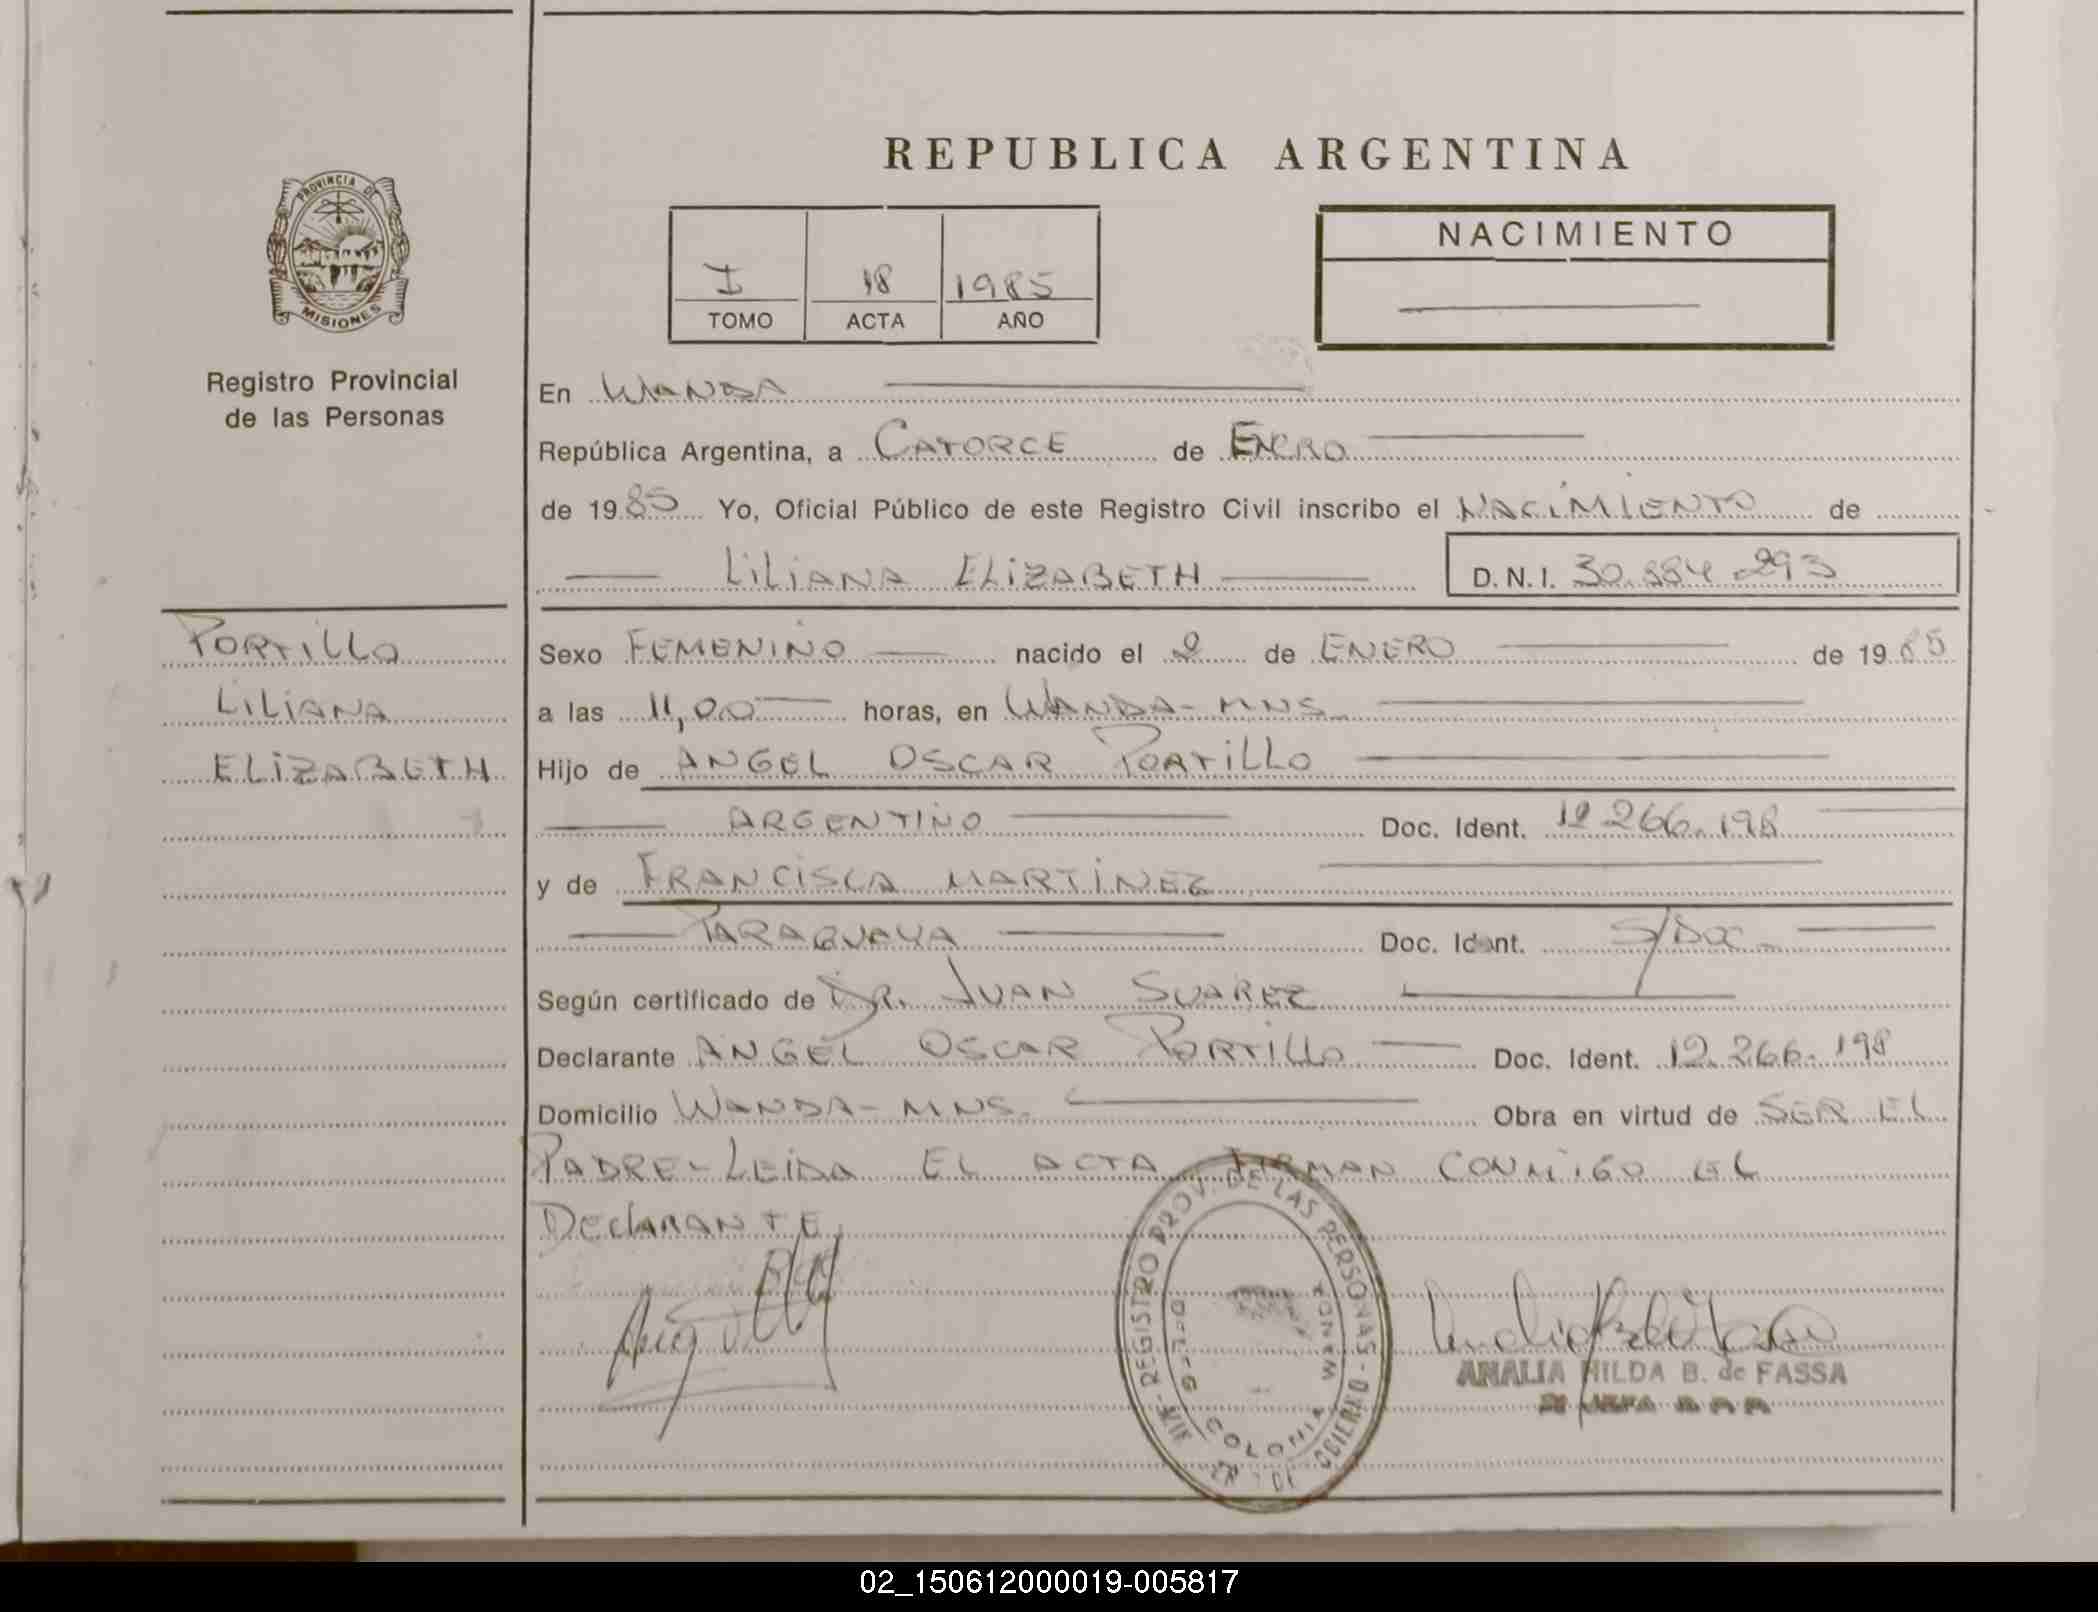 REPUBLICA ARGENTINA
PROVINCIA DE
MISIONES
Registro Provincial
de las Personas
I 18 1985
TOMO ACTA AÑO
NACIMIENTO
En WANDA
República Argentina, a CATORCE de ENERO
de 1985 Yo, Oficial Público de este Registro Civil inscribo el NACIMIENTO de
LILIANA ELIZABETH D.N.I. 30.884.293
PORTILLO
LILIANA
ELIZABETH
Sexo FEMENINO nacido el 2 de ENERO de 1985
a las 11,00 horas, en WANDA-MNS
Hijo de ANGEL OSCAR PORTILLO
ARGENTINO Doc. Ident. 12.266.198
y de FRANCISCA MARTINEZ
PARAGUAYA Doc. Ident. S/Doc.
Según certificado de DR. JUAN SUAREZ
Declarante ANGEL OSCAR PORTILLO Doc. Ident. 12.266.198
Domicilio WANDA-MNS. Obra en virtud de SER EL
PADRE-LEIDA EL ACTA FIRMAN CONMIGO EL
DECLARANTE
REGISTRO PROV. DE LAS PERSONAS
COLONIA WANDA
ANALIA HILDA B. de FASSA
02_150612000019-005817